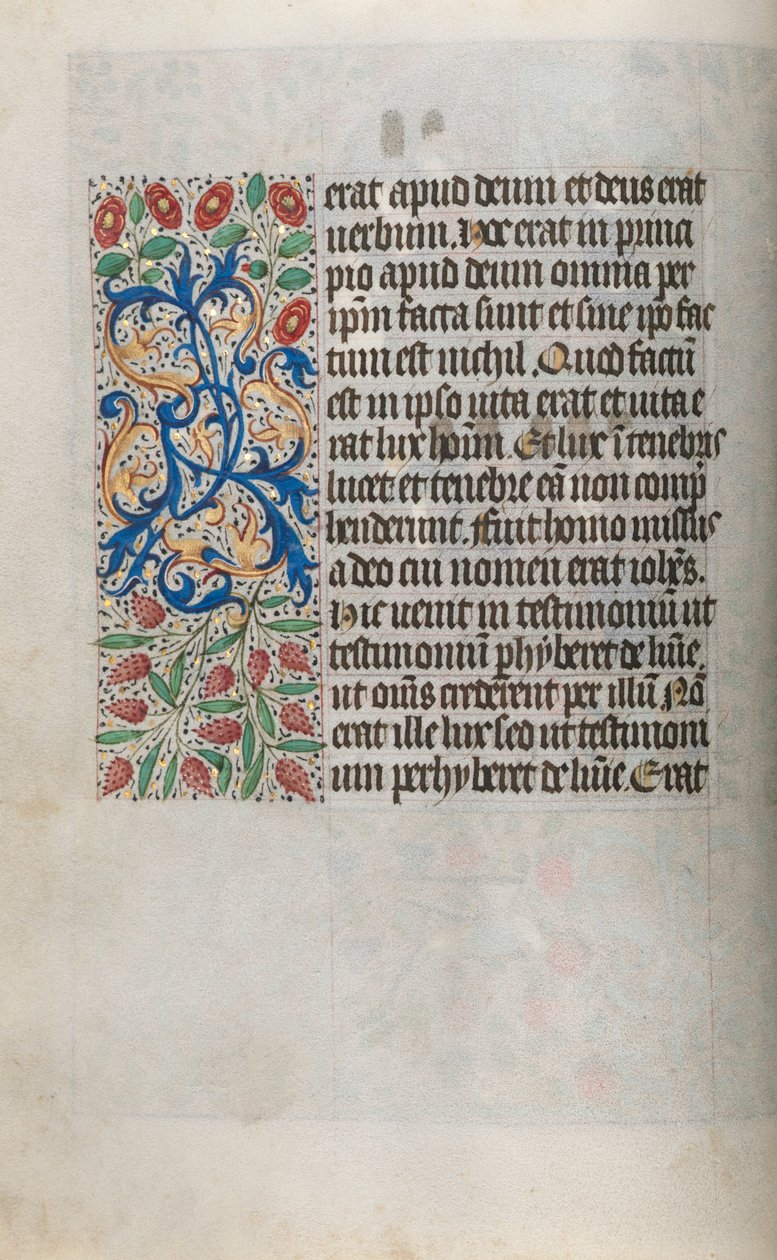 erat apud deum et deus erat
uerbum. Hoc erat in princi
pio apud deum omnia per
ip̄m facta sunt et sine ip̄o fac
tum est nichil. Quod factū
est in ipso uita erat et uita e
rat lux hoīm. Et lux ī tenebris
lucet et tenebre eā non comp̄
henderunt. Fuit homo missus
a deo cui nomen erat ioh̄es.
Hic uenit in testimoniū ut
testimoniū phyberet de lum̄e.
ut om̄s crederent per illū. Nō
erat ille lux sed ut testimoni
um perhyberet de lum̄e. Erat